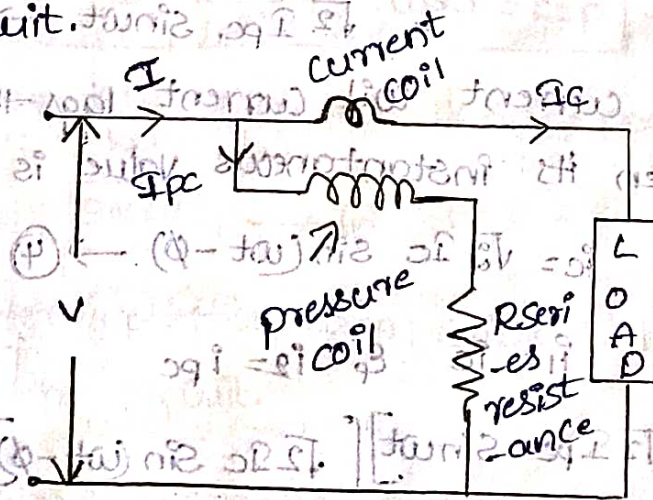 uit.
I
current
coil
IC
IPC
V
pressure
coil
Rseri
-es
resist
-ance
L
O
A
D